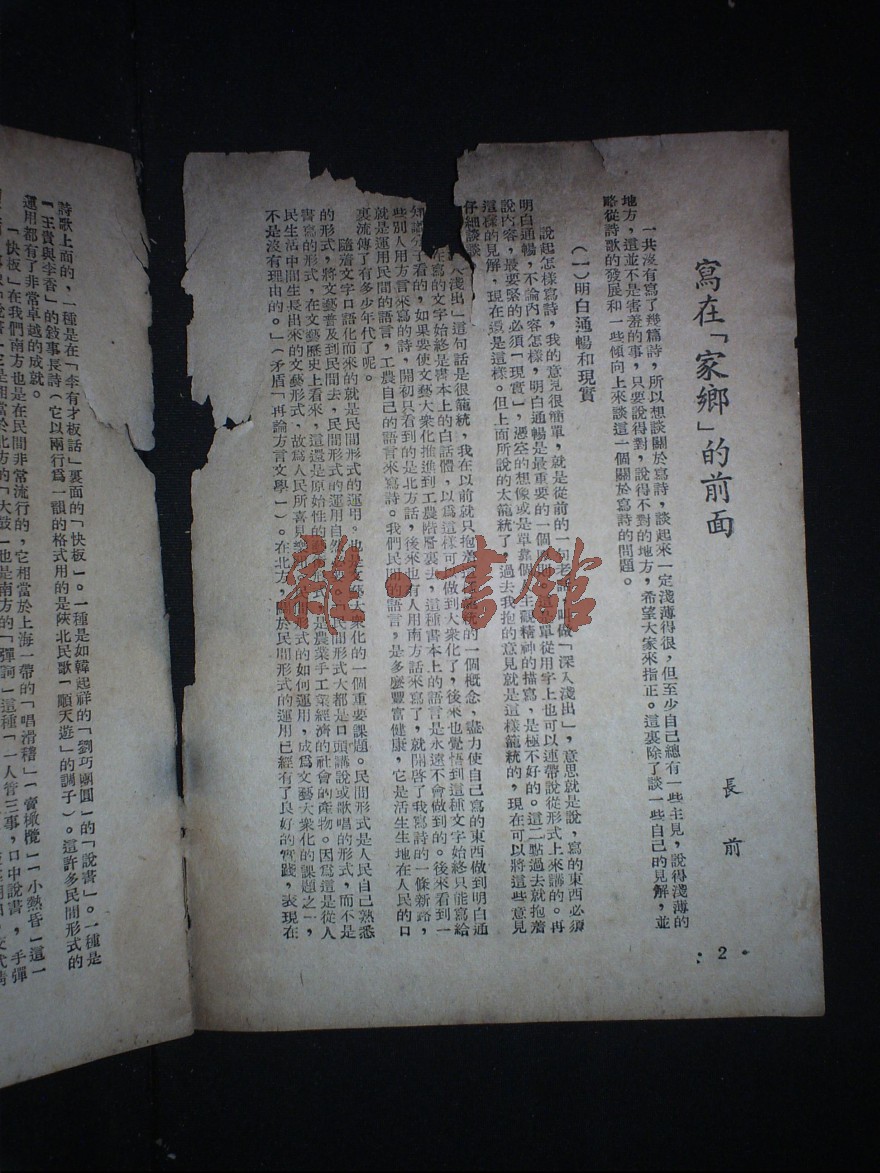 寫在「家鄉」的前面
長前
一共沒有寫了幾篇詩，所以想談關於寫詩，談起來一定淺薄得很，但至少自己總有一些主見，說得淺薄的
地方，這並不是害羞的事，只要說得對，說得不對的地方，希望大家來指正。這裏除了談一些自己的見解，並
略從詩歌的發展和一些傾向上來談這一個關於寫詩的問題。
（一）明白通暢和現實
說起怎樣寫詩，我的意見很簡單，就是從前的一句老話，叫做「深入淺出」，意思就是說，寫的東西必須
明白通暢，不論內容怎樣，明白通暢是最重要的一個單從用字上也可以連帶說從形式上來講的。再
說內容，最要緊的必須「現實」，憑空的想像或是單靠個主觀精神的描寫，是極不好的。這二點過去就抱着
這樣的見解，現在還是這樣。但上面所說的太籠統了，過去我抱的意見就是這樣籠統的，現在可以將這些意見
仔細談談
入淺出」這句話是很籠統，我在以前就只抱着籠統的一個概念，盡力使自己寫的東西做到明白通
在寫的文字始終是書本上的白話體，以爲這樣可以做到大衆化了，後來也覺悟到這種文字始終只能寫給
知識分子看的，如果要使文藝大衆化推進到工農階層裏去，這種書本上的語言是永遠不會做到的。後來看到一
些別人用方言來寫的詩，開初只看到的是北方話，後來也有人用南方話來寫了，就開啓了我寫詩的一條新路，
就是運用民間的語言，工農自己的語言來寫詩。我們民間的語言，是多麽豐富健康，它是活生生地在人民的口
裏流傳了有多少年代了呢。
隨着文字口語化而來的就是民間形式的運用。也是文藝大衆化的一個重要課題。民間形式是人民自己熟悉
的形式，將文藝普及到民間去，民間形式的運用自然民間形式大都是口頭講說或歌唱的形式，而不是
書寫的形式，在文藝歷史上看來，這還是原始性的是農業手工業經濟的社會的產物。因爲這是從人
民生活中間生長出來的文藝形式，故爲人民所喜見樂形式的如何運用，成爲文藝大衆化的課題之一，
不是沒有理由的。」（矛盾「再論方言文學一）。在北方，關於民間形式的運用已經有了良好的實踐，表現在
2
詩歌上面的，一種是在「李有才板話」裏面的「快板」。一種是如韓起祥的「劉巧團圓」的「說書」。一種是
「王貴與李香」的敘事長詩（它以兩行爲一韻的格式用的是陝北民歌「順天遊」的調子）。這許多民間形式的
運用都有了非常卓越的成就。
「快板」在我們南方也是在民間非常流行的，它相當於上海一帶的「唱滑稽」「賣橄欖」「小熱昏」這一
它是相當於北方的「大鼓」也是南方的「彈詞」這種「一人管三事，口中說書，手彈
雜·書館